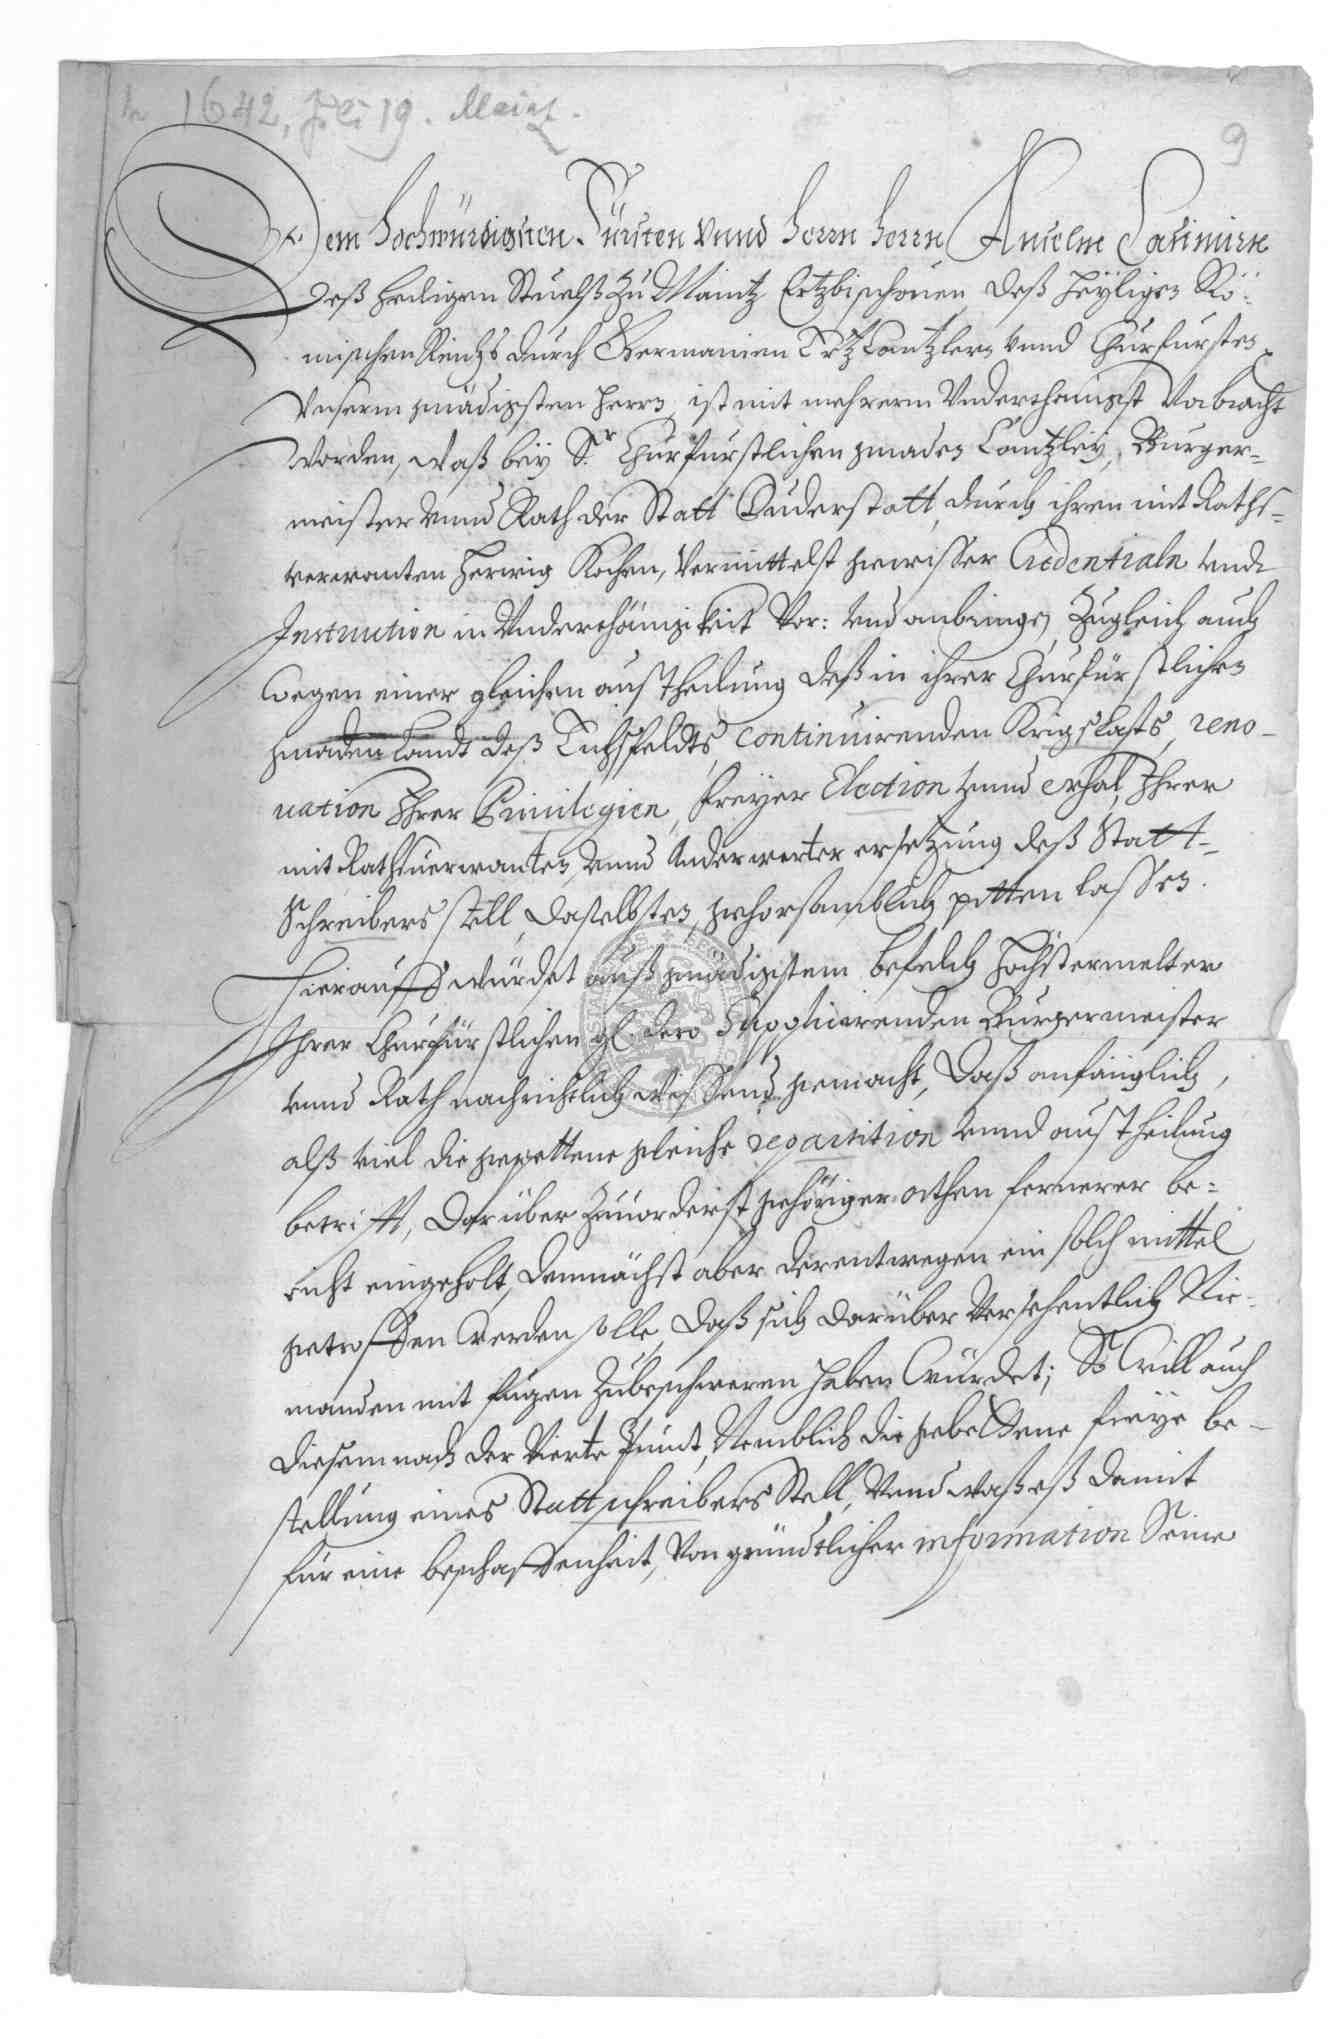 1642, Juli 19. Mainz.
9
Dem Hochwürdigsten Fürsten vnnd Herrn Herrn Anselm Casimirn
deß heiligen Stuelß Zu Maintz Ertzbischouen, deß heyligen Rö-
mischen Reichs durch Germanien Ertz Cantzlern vnnd Churfursten
Vnserm gnädigsten Herrn, ist mit mehrerm Vnderthänigst Vorbracht
worden, waß beÿ Sr. Churfurstlichen gnaden Cantzleÿ, Burger-
meister vnnd Rath der Statt Duderstatt, durch ihren mit Raths-
verwanten Herwig Kochen, Vermittelst gewisser Credentialn vnd
Instruction in Vnderthänigkeit Vor: vnd anbringen, Zugleich auch
wegen einer gleichen aus Theilung deß in ihrer Churfürstlichen
gnaden Landt deß Eichsfeldts, continuirenden Krigslasts, reno-
uation Ihrer Priuilegien, freÿer Election vnnd Ihrer
mit Rathsuerwanten, vnnd Anderwerter ersetzung deß Statt-
Schreibers stell, daselbsten, gehorsamblich pitten lassen.
Hierauff würdet auß gnädigstem befelch Höchstermelter
Ihrer Churfürstlichen gl. dero Supplicirenden Burgermeister
vnnd Rath nachrichtlich wissend gemacht, daß anfänglich,
alß viel die gepettene gleiche repartition vnnd aus Theilung
betrifft, darüber Zuuorderst gehöriger orthen fernerer be-
richt eingeholt, demnächst aber derentwegen ein solch mittel
getroffen werden solle, daß sich darüber Versehentlich Nie-
manden mit fugen Zubeschweren haben würdet; So will auch
diesem nach der Vierte Punct, Nemblich die gebettene freÿe be-
stellung eines Stattschreibers Stell, Vnnd waß eß damit
für eine beschaffenheit, Von gründtlicher information Seine